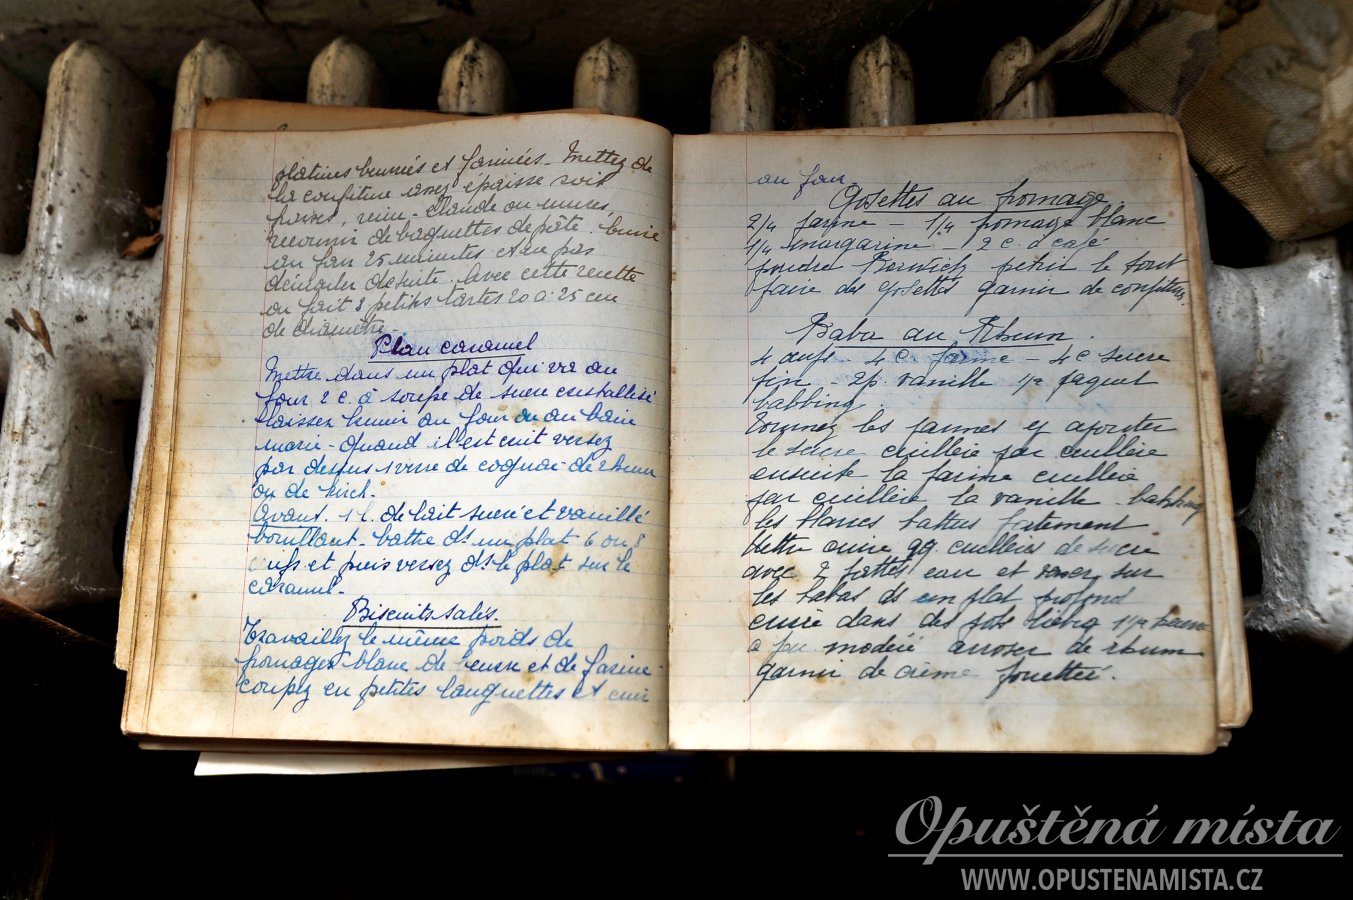 platines beurrées et farinées. Mettez de
la confiture assez épaisse soit
poires, reine-claude ou mures,
recouvrir de baguettes de pâte, cuire
au four 25 minutes et ne pas
démouler de suite. Avec cette recette
on fait 3 petites tartes 20 à 25 cm
de diamètre.
Flan caramel
Mettre dans un plat qui va au
four 2 c. à soupe de sucre cristallisé
laissez brunir au four ou au bain
marie - quand il est cuit versez
par dessus 1 verre de cognac - de rhum
ou de kirch.
Avant. 1 l. de lait sucré et vanillé
bouillant - battre ds un plat 6 ou 8
œufs et puis versez ds le plat sur le
caramel.
Biscuits salés.
Travaillez le même poids de
fromages blanc de beurre et de farine
coupez en petites languettes et cuir
au four.
Gosettes au fromage
2/4 farine - 1/4 fromage blanc
1/4 margarine - 2 c. à café
poudre Borwick petrir le tout
faire des gosettes garnir de confiture.
Baba au Rhum.
4 œufs - 4 c farine - 4 c sucre
fin - 2 p. vanille 1/2 paquet
babbing.
Tournez les jaunes y ajouter
le sucre cuillère par cuillère
ensuite la farine cuillère
par cuillère la vanille babbing
les blancs battus fortement
Mettre cuire qq. cuillères de sucre
avec 2 pattes eau et verser sur
les babas ds un plat profond
cuire dans des pots liebig 1 1/2 heure
a feu modéré arroser de rhum
garnir de crème fouettée.
Opuštěná místa
WWW.OPUSTENAMISTA.CZ